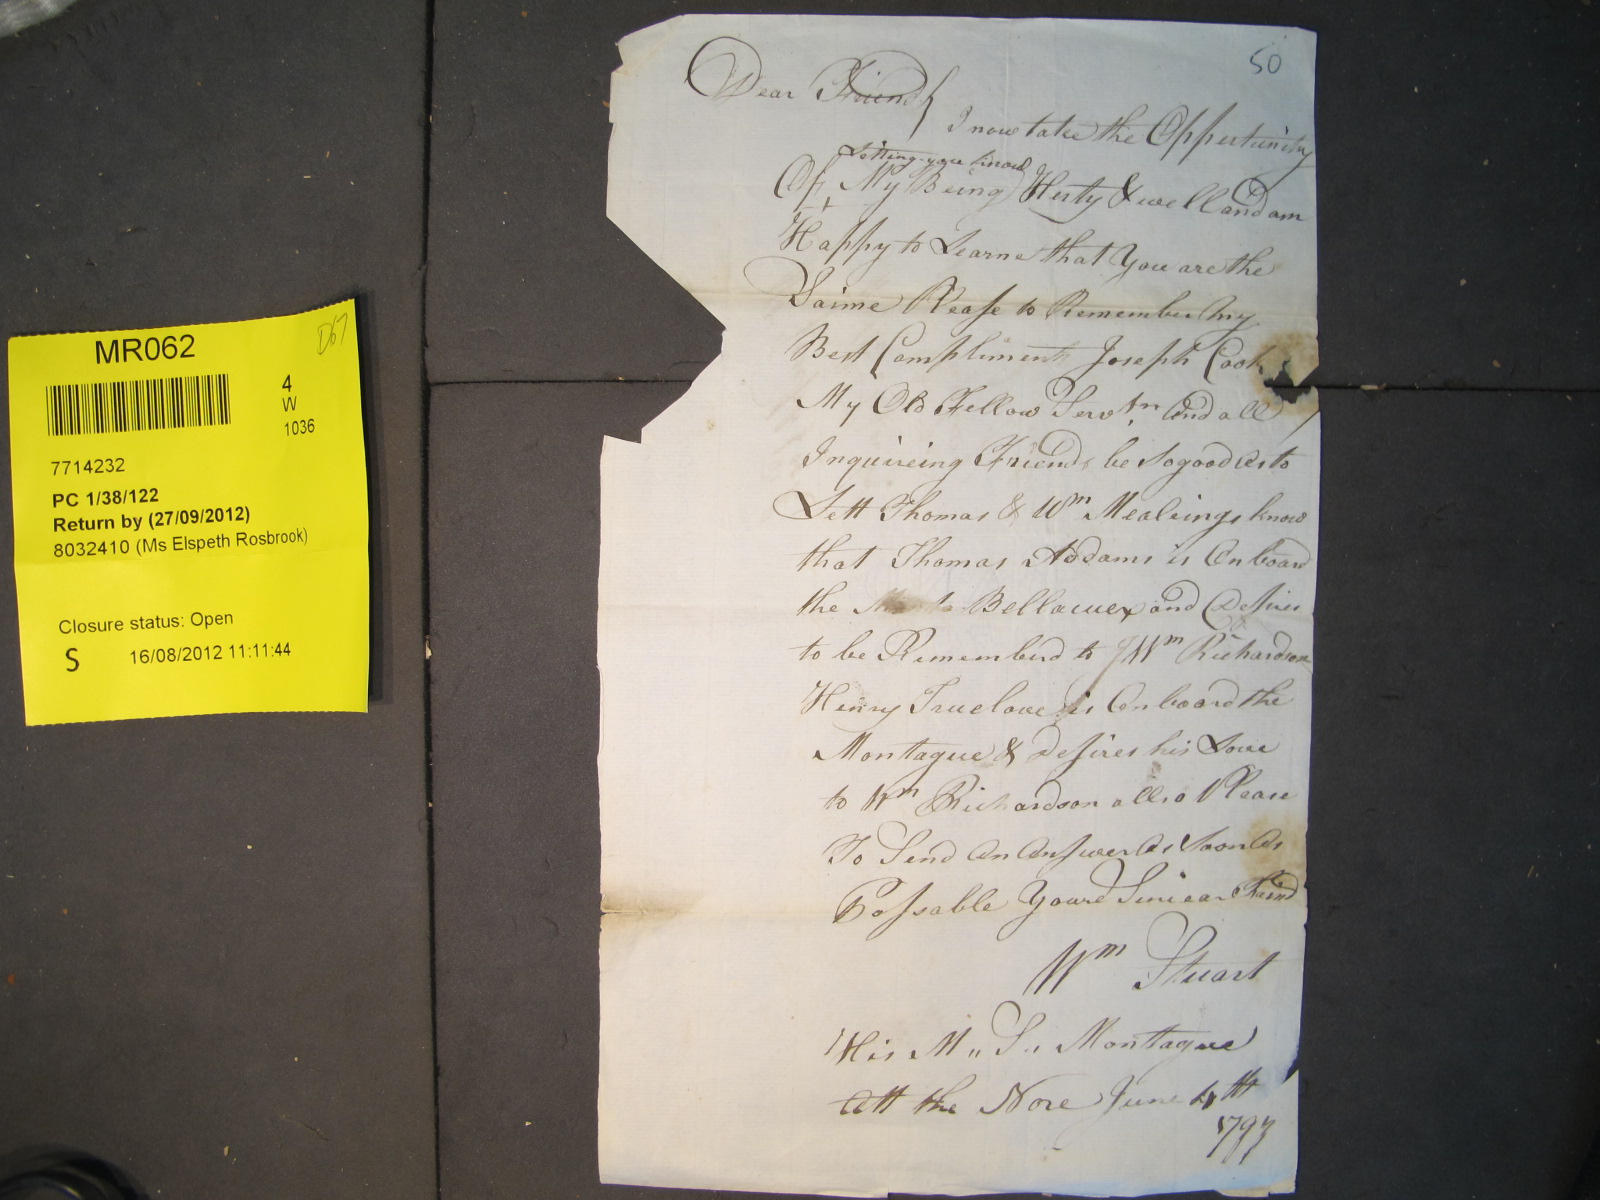 50
Dear Friend
I now take the Oppertunity
letting you know
Of, My Being Herty & well and am
Happy to Learne that You are the
Saime Please to Remember my
Best Compliments Joseph Cook
My Old Fellow Servtn. And all
Inquireing Friends be so good as to
Lett Thomas & Wm Mealeings know
that Thomas Addams is On board
the Bellawex and Desires
to be Rememberd to Wm Richardson
Henry Truelove is On board the
Montague & Desires his Love
to Wm Richardson allso Please
To Send An Answer As Soon As
Possable Youre Sincear Friend
Wm Stuart
His M,, S,, Montague
Att the Nore June 4th
1797
MR062
D67
4
W
1036
7714232
PC 1/38/122
Return by (27/09/2012)
8032410 (Ms Elspeth Rosbrook)
Closure status: Open
S 16/08/2012 11:11:44